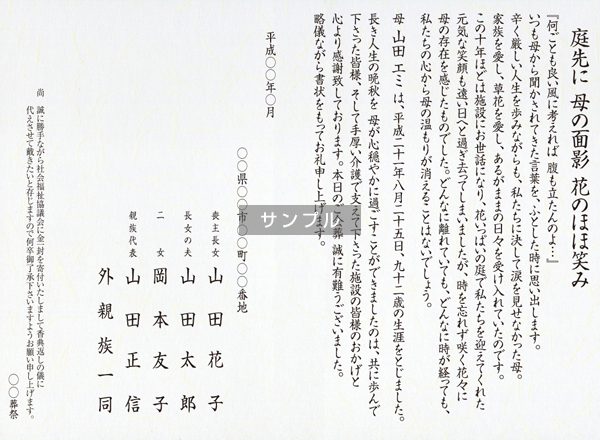 庭先に 母の面影 花のほほ笑み
『何ごとも良い風に考えれば 腹も立たんのよ…』
いつも母から聞かされてきた言葉を、ふとした時に思い出します。
辛く厳しい人生を歩みながらも、私たちに決して涙を見せなかった母。
家族を愛し、草花を愛し、あるがままの日々を受け入れていたのです。
この十年ほどは施設にお世話になり、花いっぱいの庭で私たちを迎えてくれた
元気な笑顔も遠い日へと過ぎ去ってしまいましたが、時を忘れず咲く花々に
母の存在を感じたものでした。どんなに離れていても、どんなに時が経っても、
私たちの心から母の温もりが消えることはないでしょう。
母 山田 エミ は、平成二十一年八月二十五日、九十二歳の生涯をとじました。
長き人生の晩秋を 母が心穏やかに過ごすことができましたのは、共に歩んで
下さった皆様、そして手厚い介護で支えて下さった施設の皆様のおかげと
心より感謝致しております。本日のご会葬 誠に有難うございました。
略儀ながら書状をもってお礼申し上げます。
平成〇〇年〇月
〇〇県〇〇市〇〇町〇〇番地
喪主長女 山田花子
長女の夫 山田太郎
二女 岡本友子
親族代表 山田正信
外親族一同
尚 誠に勝手ながら社会福祉協議会に金一封を寄付いたしまして香典返しの儀に
代えさせて戴きたいと存じますので何卒御了承下さいますようお願い申し上げます。
〇〇葬祭
サンプル